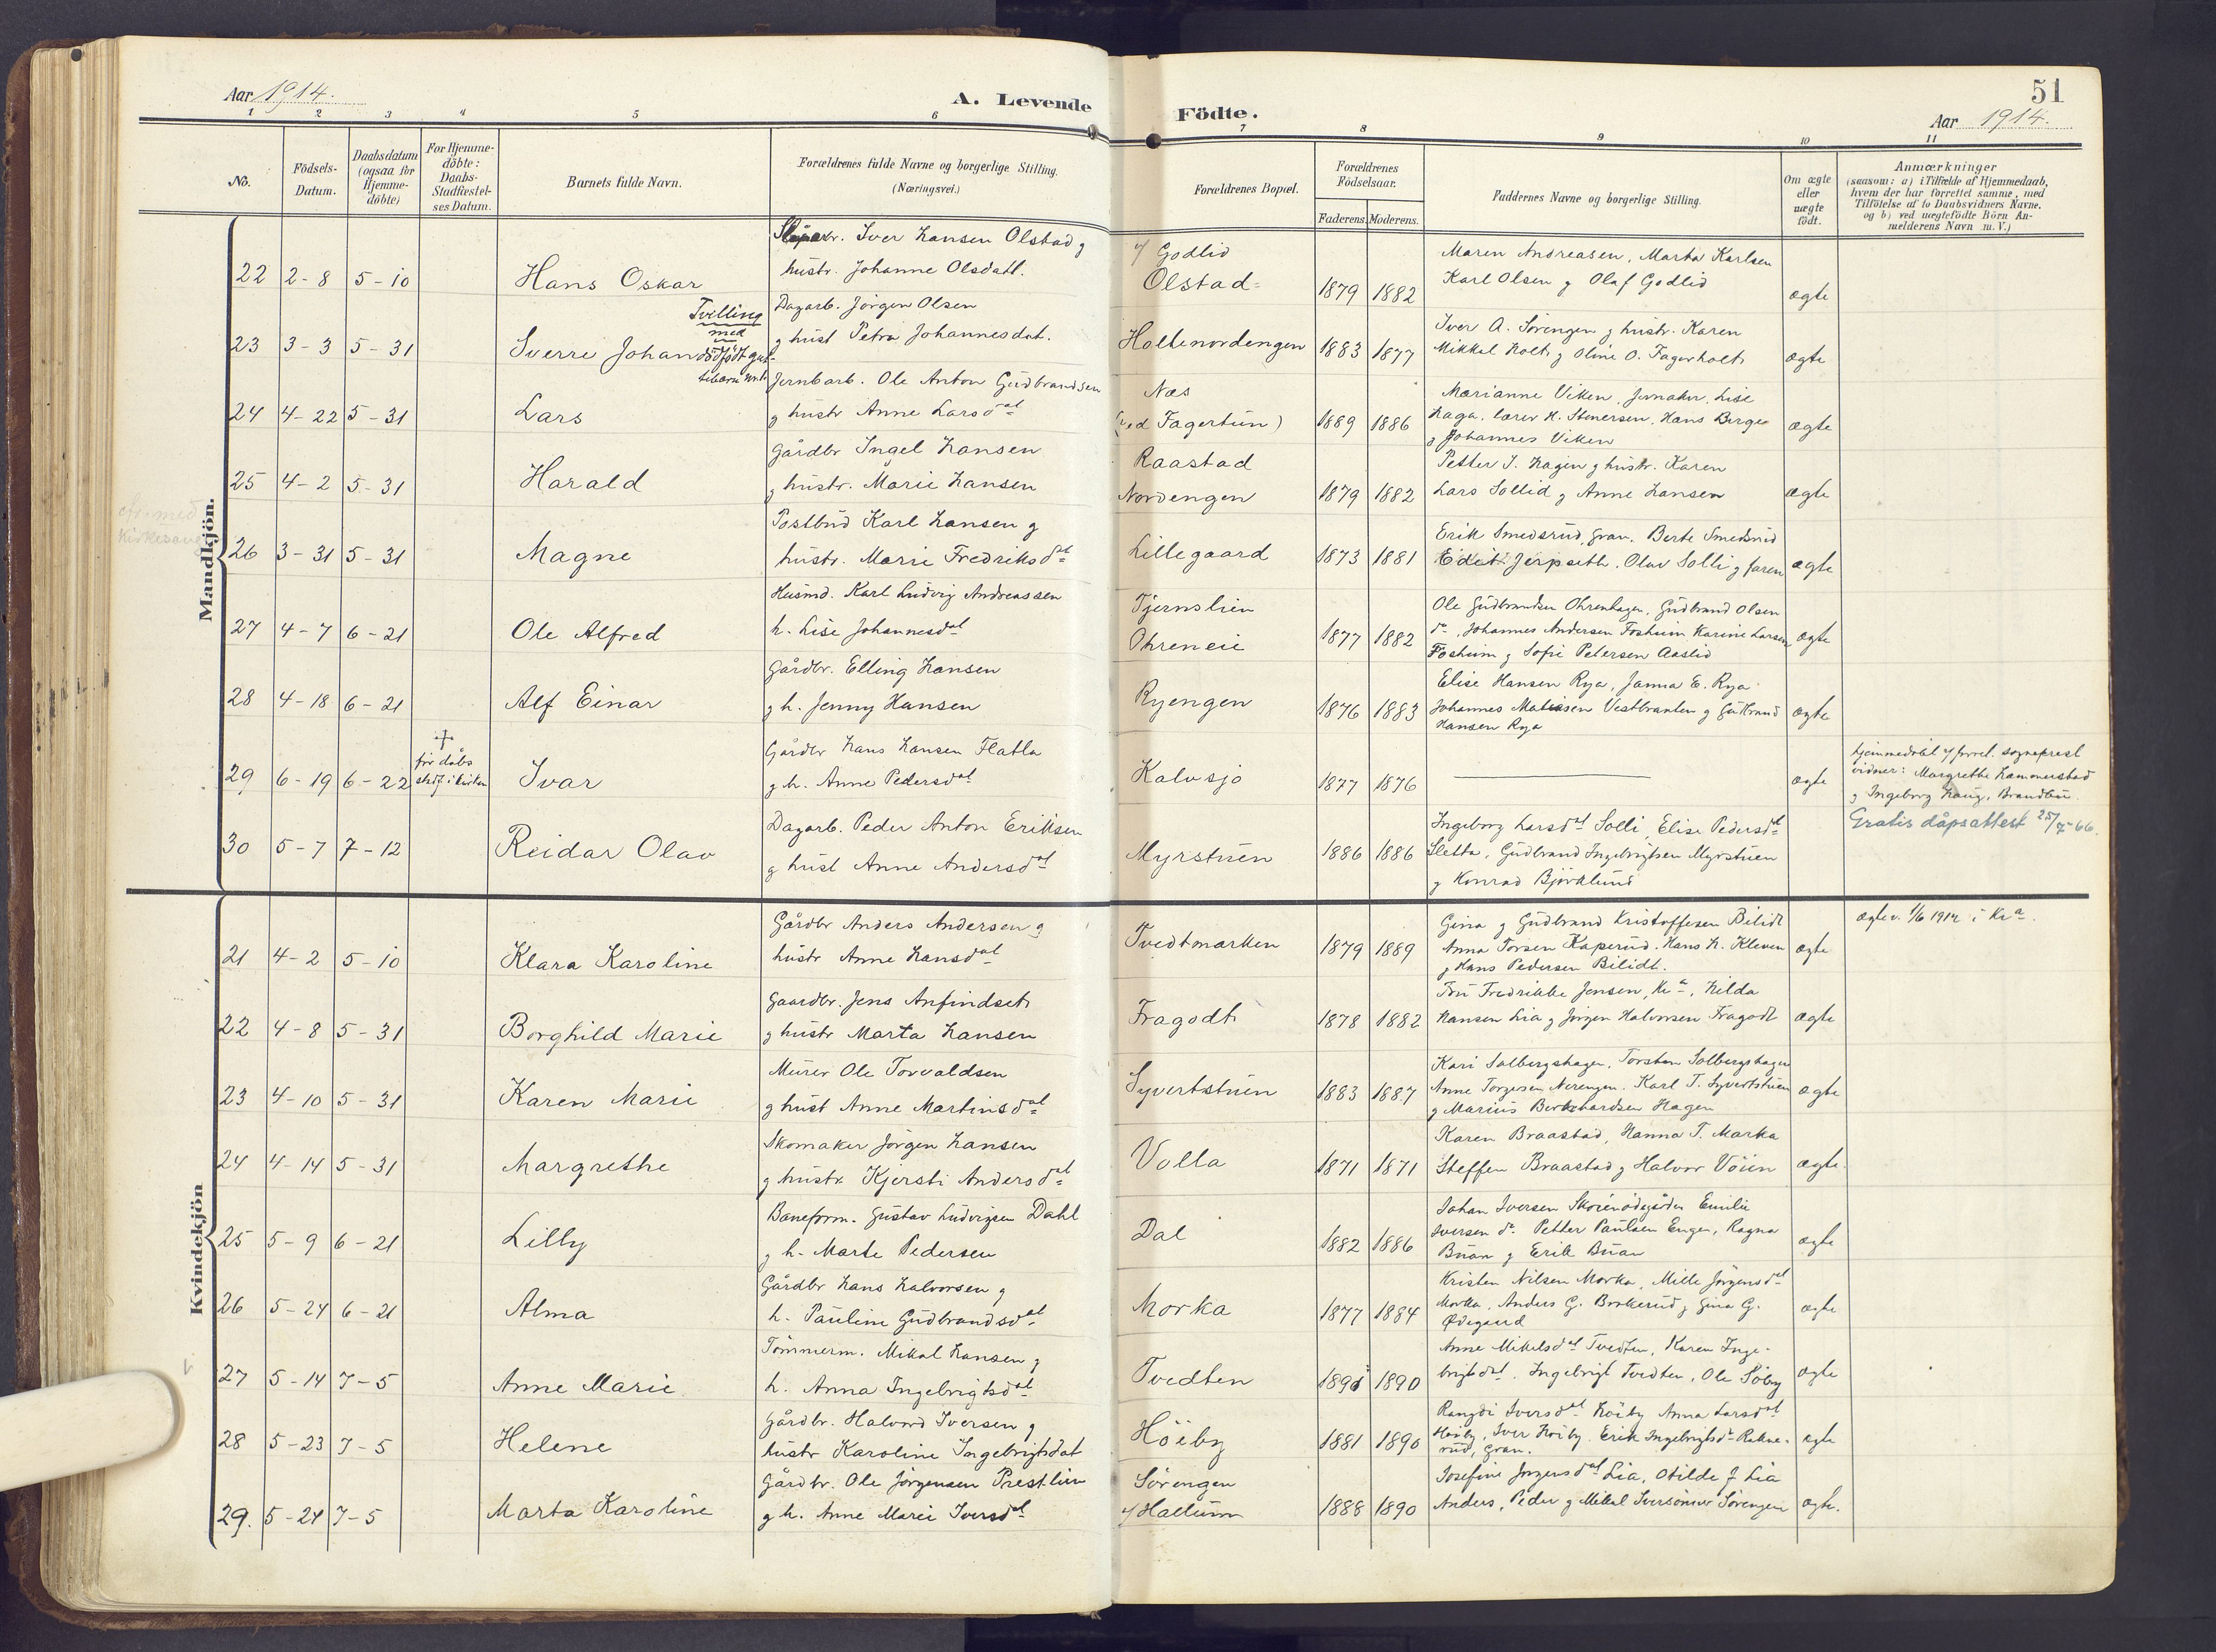 Aar 1914.
A. Levende Födte.
51
Aar 1914.
1 2 3 4 5 6 7 8 9 10 11
No.
Födsels-Datum.
Daabsdatum (ogsaa for Hjemme-döbte)
For Hjemme-döbte: Daabs-Stadfæstel-ses Datum.
Barnets fulde Navn.
Forældrenes fulde Navne og borgerlige Stilling. (Næringsvei.)
Forældrenes Bopæl.
Forældrenes Födselsaar.
Faderens. Moderens.
Faddernes Navne og borgerlige Stilling.
Om ægte eller uægte födt.
Anmærkninger
(saasom: a) i Tilfælde af Hjemmedaab,
hvem der har forrettet samme, med
Tilföielse af to Daabsvidners Navne,
og b) ved uegtefödte Börn An-
melderens Navn m. V.)
Mandkjön.
22 2-8 5-10 Hans Oskar
Iver Hansen Olstad g
hustr. Johanne Olsdatt.
Godlid
Olstad
1879 1882
Maren Andreasen, Marta Karlsen
Karl Olsen g Olaf Godlid
ægte
23 3-3 5-31 Sverre Johan
Tvilling
med
dödfödt
Dagarb. Jörgen Olsen
g hust Petra Johannesdat.
Holtenordengen
1883 1877
Iver A. Sörengen g hustr. Karen
Mikkel Holt g Oline O. Fagerholt
ægte
24 4-22 5-31 Lars
Jernbarb. Ole Anton Gudbrandsen
g hustr Anne Larsdat
Næs
(ved Fagertun)
1889 1886
Marianne Viken, Jevnaker, Lise
Haga, lærer H. Stenersen, Hans Berge
g Johannes Viken
ægte
25 4-2 5-31 Harald
Gårdbr Ingel Hansen
g hustr. Marie Hansen
Raastad
Nordengen
1879 1882
Petter J. Hagen g hustr. Karen
Lars Sollid g Anne Hansen
ægte
26 3-31 5-31 Magne
Postbud Karl Hansen g
hustr. Marie Fredriksdat
Lillegaard
1873 1881
Erik Smedsrud, Gran. Berte Smedsrud
Edit Jerpseth. Olav Solli g faren
ægte
27 4-7 6-21 Ole Alfred
Husmd. Karl Ludvig Andreassen
h. Lise Johannesdat
Tjernslien
Ohreneie
1877 1882
Ole Gudbrandsen Ohrenhagen, Gudbrand Olsen
do, Johannes Andersen Fosheim Karine Larsen
Fosheim g Sofie Petersen Aaslid
ægte
28 4-18 6-21 Alf Einar
Gårdbr. Elling Hansen
g h. Jenny Hansen
Ryengen
1876 1883
Elise Hansen Rya, Janna E. Rya
Johannes Matiasen Vestbraaten g Gudbrand
Hansen Rya
ægte
29 6-19 6-22
†
för dåbs
stadf. i kirken
Ivar
Gårdbr Hans Hansen Flatla
g h. Anne Pedersdat
Kalvsjö
1877 1876
ægte
Hjemmedöbt sogneprest
vidner: Margrethe Hammerstad
g Ingeborg Haug, Brandbu.
30 5-7 7-12 Reidar Olav
Dagarb. Peder Anton Eriksen
g hust Anne Andersdat
Myrstuen
1886 1886
Ingeborg Larsdat Solli, Elise Pedersdat
Sletta, Gudbrand Ingebrigtsen Myrstuen
g Konrad Björklund
Gratis dåpsattest 25/7-66.
Kvindekjön
21 4-2 5-10 Klara Karoline
Gårdbr Anders Andersen g
hustr Anne Hansdat
Tvedtmarken
1879 1889
Gina g Gudbrand Kristoffersen Bilidt
Anna Torsen Kaperud. Hans H. Kleven
g Hans Pedersen Bilidt.
ægte
1/6 1914 i Kra.
22 4-8 5-31 Borghild Marie
Gaardbr. Jens Anfindset
g hustr Marta Hansen
Fragodt
1878 1882
Fru Fredrikke Jensen, Kra, Hilda
Hansen Lia g Jörgen Halvorsen Fragodt
ægte
23 4-10 5-31 Karen Marie
Murer Ole Torvaldsen
g hust Anne Martinsdat
Syvertstuen
1883 1887
Kari Solbergshagen, Torsten Solbergshagen
Anne Torgersen Nerengen. Karl T. Syvertstuen
g Marius Berkhardsen Hagen
ægte
24 4-14 5-31 Margrethe
Skomaker Jörgen Hansen
g hustr. Kjersti Andersdat
Volla
1871 1871
Karen Braastad, Hanna T. Marka
Steffen Braastad g Halvor Vöien
ægte.
25 5-9 6-21 Lilly
Baneform. Gustav Ludvigsen Dahl
g h. Marte Pedersen
Dal
1882 1886
Johan Iversen Emilie
Iversen do Petter Paulsen Enger, Ragna
Buan g Erik Buan
ægte
26 5-24 6-21 Alma
Gårdbr Hans Halvorsen g
h. Pauline Gudbrandsdat
Morka
1877 1884
Kristen Nilsen Morka, Mille Jörgensdat
Morka, Anders G. Brokerud g Gina G.
Ødegaard
ægte
27 5-14 7-5 Anne Marie
Tömmerm. Mikal Hansen g
h. Anna Ingebrigtsdat
Tvedten
1891 1890
Anne Mikelsdat Tvedten, Karen Inge-
brigtsdat. Ingebrigt Tvedten, Ole Söby
ægte
28 5-23 7-5 Helene
Gårdbr. Halvord Iversen g
hustr Karoline Ingebrigtsdat
Höiby
1881 1890
Rangdi Iversdat Höiby Anna Larsdat
Höiby, Iver Höiby. Erik Ingebrigtsdn Rekne-
rud, Gran.
ægte
29. 5-24 7-5 Marta Karoline
Gårdbr. Ole Jörgensen Prestlien
g h. Anne Marie Iversdat
Sörengen
Hallum
1888 1890
Josefine Jörgensdat Lia, Otilde J Lia
Anders, Peder g Mikkel Iversönner Sörengen
ægte.